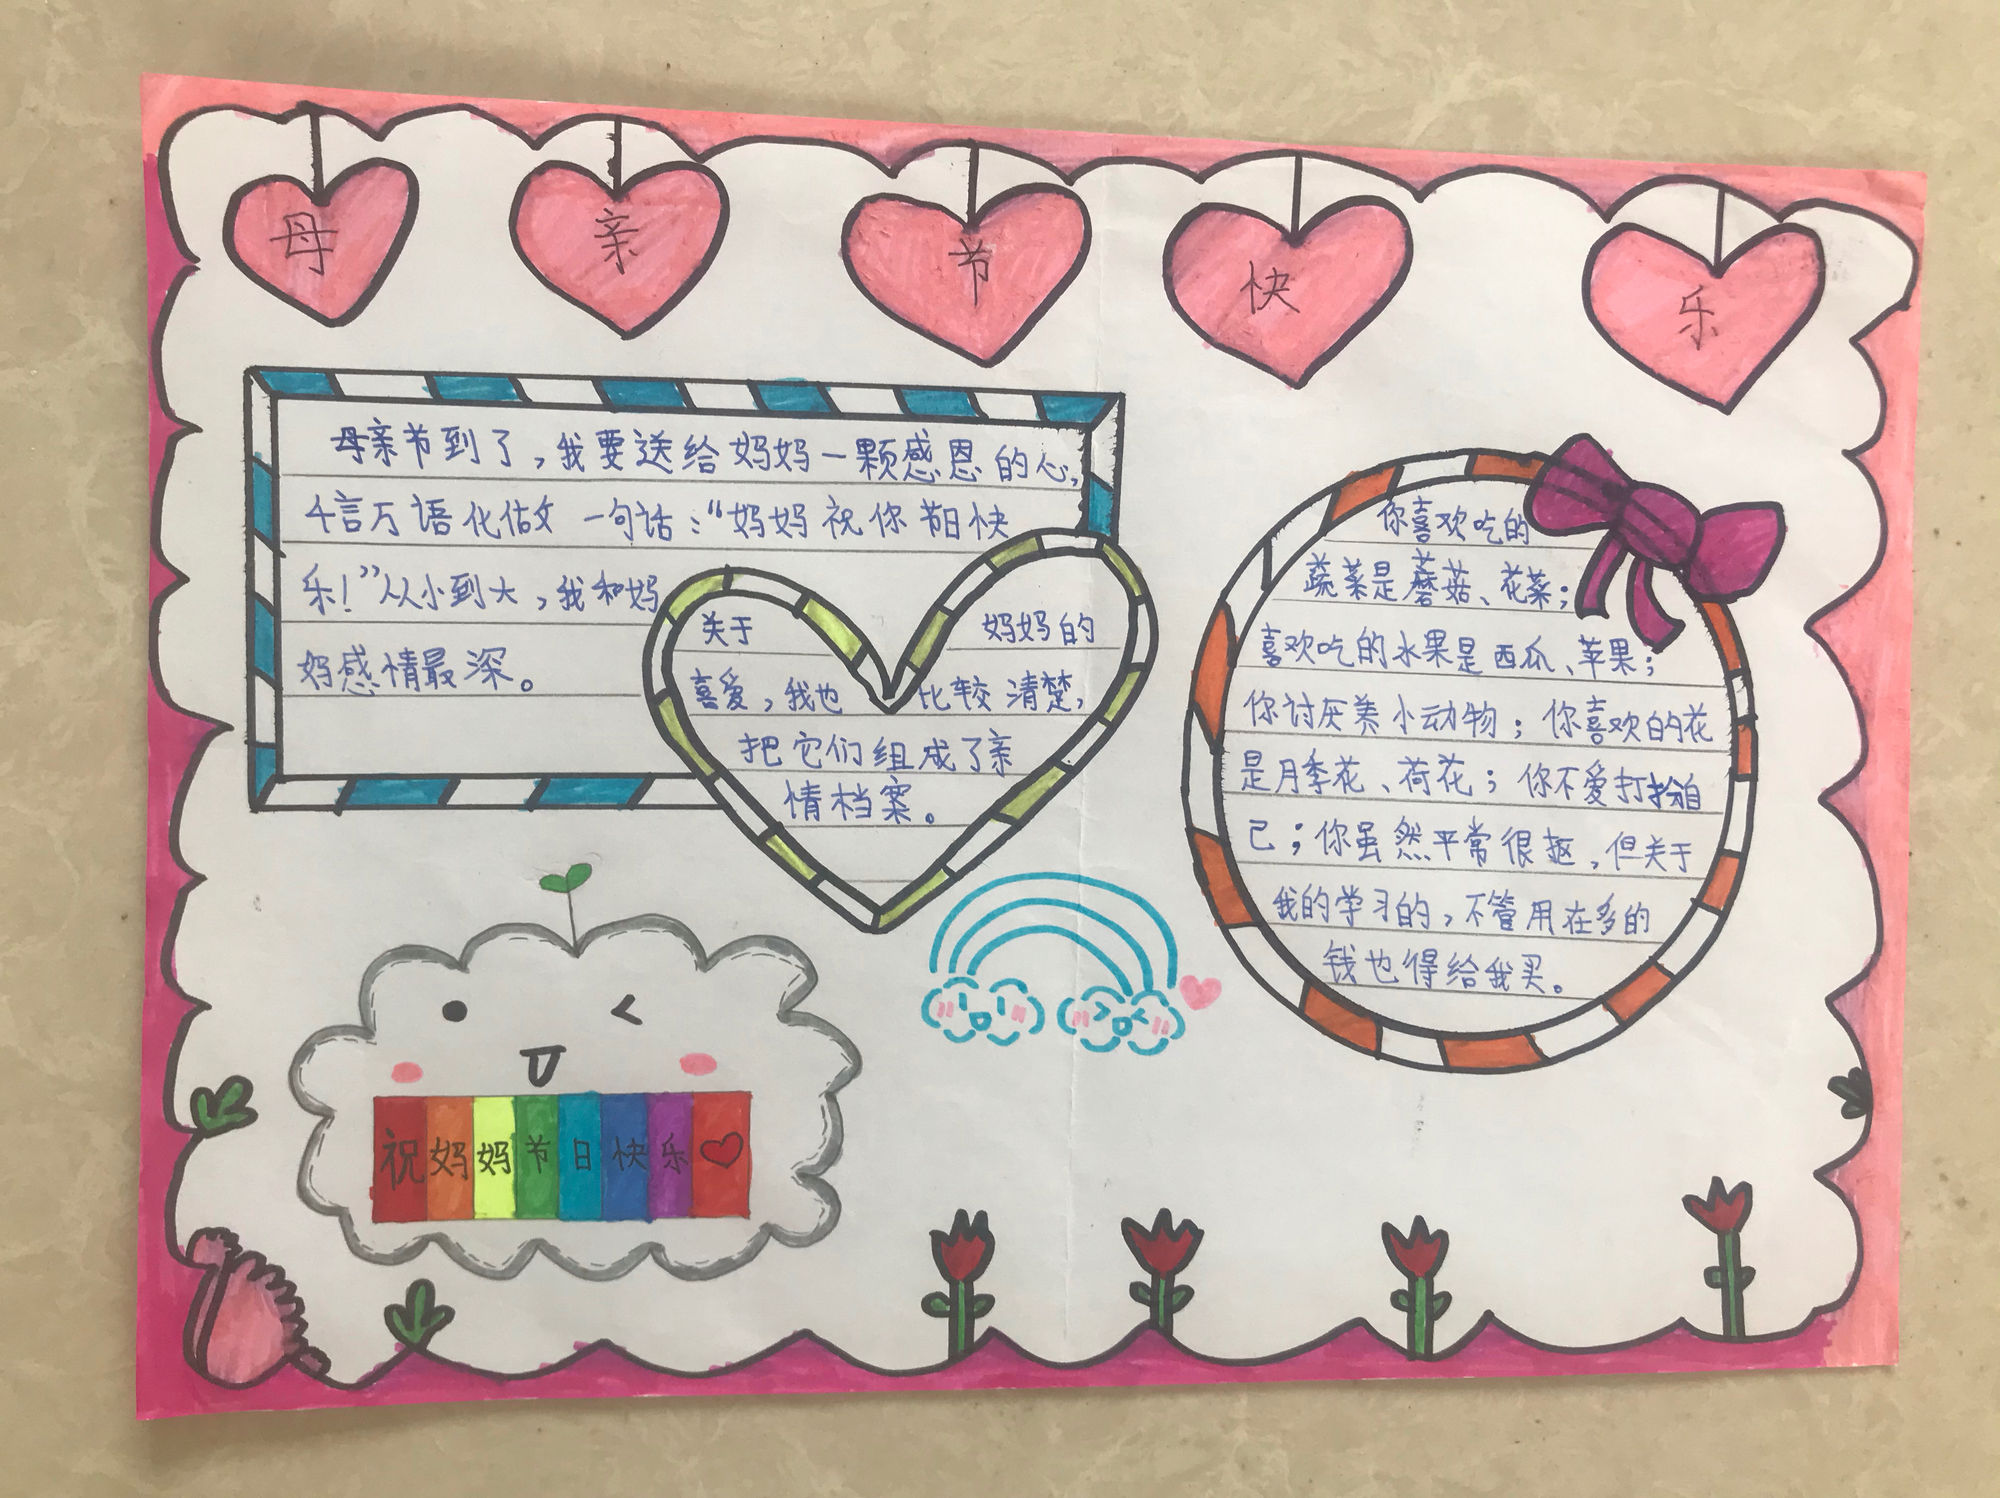 母亲节快乐
母亲节到了,我要送给妈妈一颗感恩的心,
千言万语化做一句话:“妈妈祝你节日快
乐!”从小到大,我和妈
妈感情最深。
关于 妈妈的
喜爱,我也 比较清楚,
把它们组成了亲
情档案。
你喜欢吃的
蔬菜是蘑菇、花菜;
喜欢吃的水果是西瓜、苹果;
你讨厌养小动物;你喜欢的花
是月季花、荷花;你不爱打扮自
己;你虽然平常很抠,但关于
我的学习的,不管用在多的
钱也得给我买。
祝妈妈节日快乐